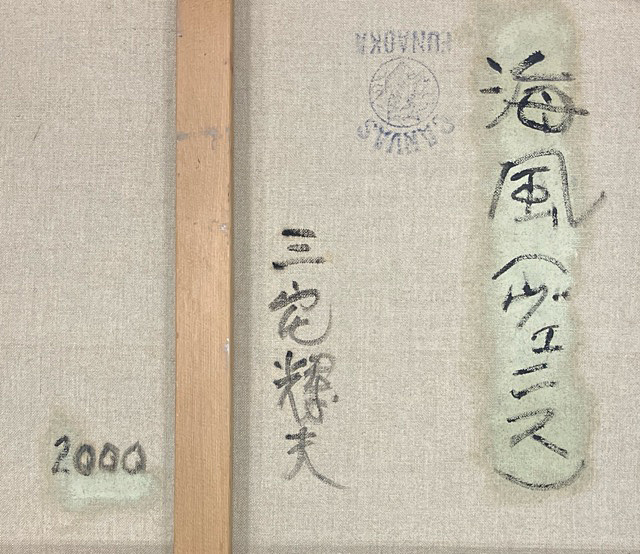 海風（ヴェニス）
三宅輝夫
2000
FUNAOKA
CANVAS